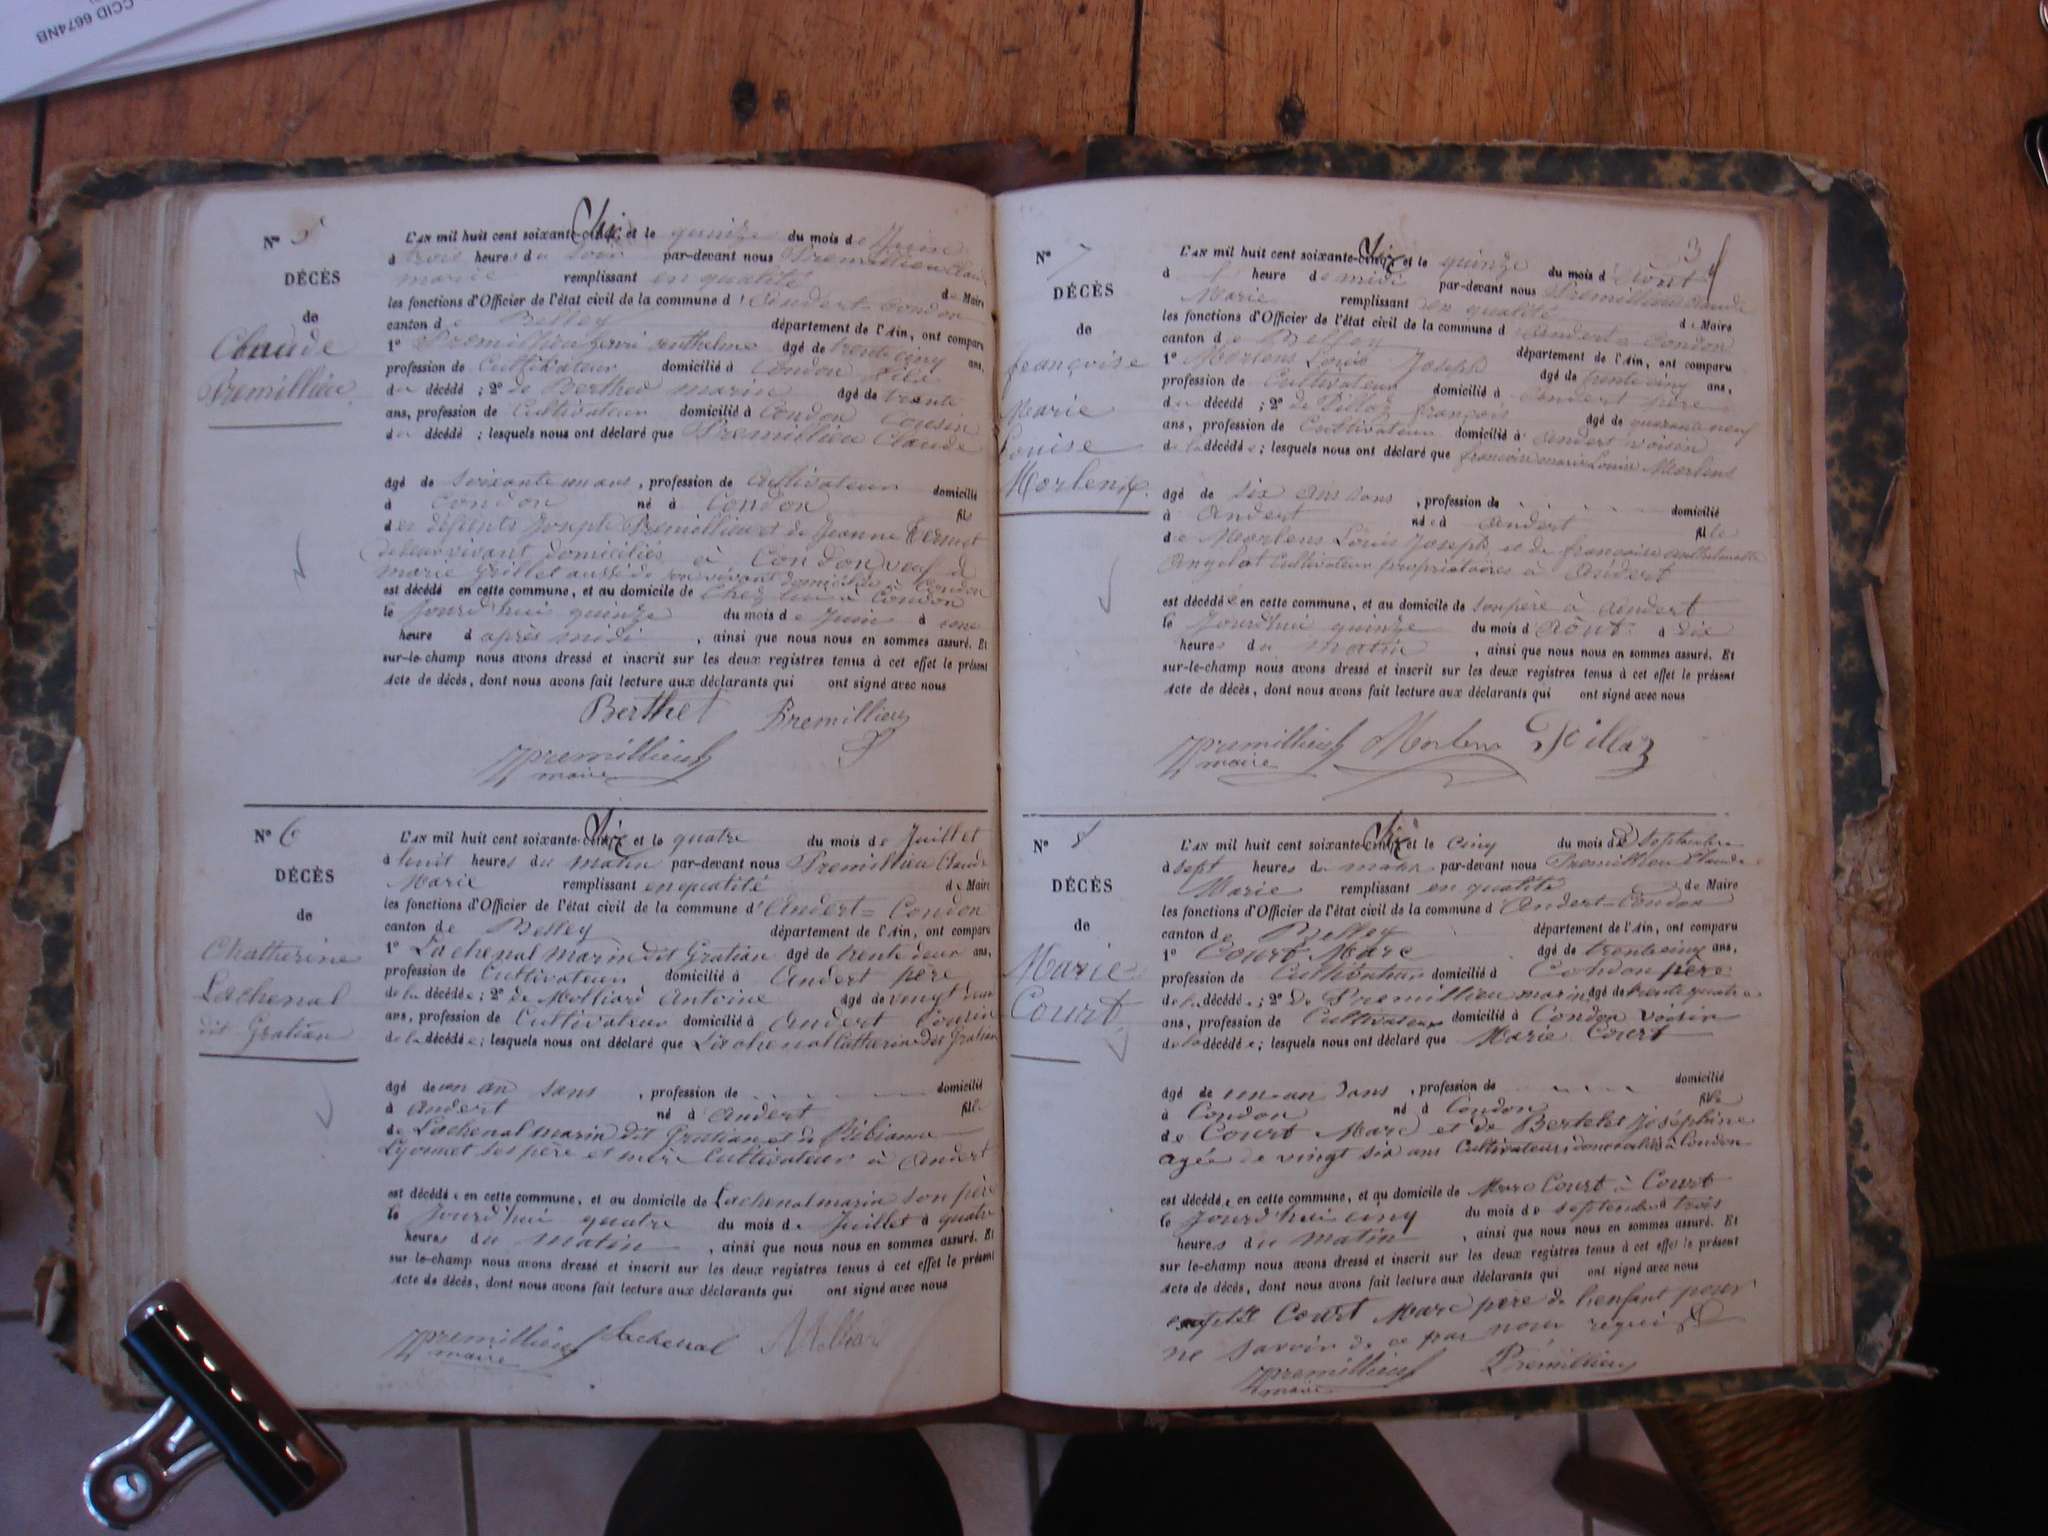 CCID 6674NB
N° 5
DÉCÈS
de
Claude
Premillieu
L'AN mil huit cent soixante-cinq Six et le quinze du mois de Juin
à trois heures du soir par-devant nous Premillieu Claude
marie remplissant en qualité de Maire
les fonctions d'Officier de l'état civil de la commune d'Andert-Condon
canton de Belley département de l'Ain, ont comparu
1° Premillieu henri anthelme âgé de trente cinq ans,
profession de Cultivateur domicilié à Condon fils
du décédé ; 2° de Berthet marin âgé de trente
ans, profession de Cultivateur domicilié à Condon Cousin
du décédé ; lesquels nous ont déclaré que Premillieu Claude
âgé de soixante un ans, profession de Cultivateur domicilié
à Condon né à Condon fils
des défunts Joseph Premillieu et de Jeanne
de leur vivant domiciliés à Condon veuf de
marie Grillet aussi de son vivant domiciliée à Condon
est décédé en cette commune, et au domicile de Chez lui à Condon
le Jourd'hui quinze du mois de Juin à une
heure d'après midi, ainsi que nous nous en sommes assuré. Et
sur-le-champ nous avons dressé et inscrit sur les deux registres tenus à cet effet le présent
Acte de décès, dont nous avons fait lecture aux déclarants qui ont signé avec nous
Berthet Premillieu
Premillieu
maire
N° 6
DÉCÈS
de
Chatherine
Lachenal
dit Gratian
L'AN mil huit cent soixante-cinq Six et le quatre du mois de Juillet
à huit heures du matin par-devant nous Premillieu Claude
Marie remplissant en qualité de Maire
les fonctions d'Officier de l'état civil de la commune d'Andert=Condon
canton de Belley département de l'Ain, ont comparu
1° Lachenal marin dit Gratian âgé de trente deux ans,
profession de Cultivateur domicilié à Andert père
de la décédée ; 2° de Molliard Antoine âgé de vingt
ans, profession de Cultivateur domicilié à Andert Cousin
de la décédée ; lesquels nous ont déclaré que Lachenal Catherine dit Gratian
âgé de un an sans, profession de domicilié
à Andert né à Andert fille
de Lachenal marin dit Gratian et de Bibianne
Lyonnet ses père et mère Cultivateur à Andert
est décédée en cette commune, et au domicile de Lachenal marin son père
le Jourd'hui quatre du mois de Juillet à quatre
heures du matin, ainsi que nous nous en sommes assuré. Et
sur-le-champ nous avons dressé et inscrit sur les deux registres tenus à cet effet le présent
Acte de décès, dont nous avons fait lecture aux déclarants qui ont signé avec nous
Premillieu Lachenal Molliard
maire
3
N° 7
DÉCÈS
de
françoise
Marie
Louise
Morlens
L'AN mil huit cent soixante-cinq Six et le quinze du mois d'Août
à heure de midi par-devant nous Premillieu Claude
Marie remplissant en qualité de Maire
les fonctions d'Officier de l'état civil de la commune d'Andert=Condon
canton de Belley département de l'Ain, ont comparu
1° Morlens Louis Joseph âgé de trente cinq ans,
profession de Cultivateur domicilié à Andert père
du décédé ; 2° de Pilloz françois âgé de quarante neuf
ans, profession de Cultivateur domicilié à Andert voisin
de la décédée ; lesquels nous ont déclaré que francoise marie Louise Morlens
âgé de six ans sans, profession de domicilié
à Andert née à Andert fille
de Morlens Louis Joseph et de françoise
Angelot Cultivateur propriétaires à Andert
est décédée en cette commune, et au domicile de son père à Andert
le Jourd'hui quinze du mois d'Août à dix
heures du matin, ainsi que nous nous en sommes assuré. Et
sur-le-champ nous avons dressé et inscrit sur les deux registres tenus à cet effet le présent
Acte de décès, dont nous avons fait lecture aux déclarants qui ont signé avec nous
Premillieu Morlens Pilloz
maire
N° 8
DÉCÈS
de
Marie
Court
L'AN mil huit cent soixante-cinq Six et le Cinq du mois de Septembre
à sept heures du matin par-devant nous Premillieu Claude
Marie remplissant en qualité de Maire
les fonctions d'Officier de l'état civil de la commune d'Andert=Condon
canton de Belley département de l'Ain, ont comparu
1° Court Marc âgé de trente cinq ans,
profession de Cultivateur domicilié à Condon père
de la décédée ; 2° De Premillieu marin âgé de trente quatre
ans, profession de Cultivateur domicilié à Condon voisin
de la décédée ; lesquels nous ont déclaré que Marie Court
âgé de un an sans, profession de domicilié
à Condon né à Condon fille
de Court Marc et de Bertelet Joséphine
agée de vingt six ans Cultivateurs domiciliés à Condon
est décédée en cette commune, et au domicile de Marc Court à Court
le Jourd'hui cinq du mois de septembre à trois
heures du matin, ainsi que nous nous en sommes assuré. Et
sur-le-champ nous avons dressé et inscrit sur les deux registres tenus à cet effet le présent
Acte de décès, dont nous avons fait lecture aux déclarants qui ont signé avec nous
excepté Court Marc père de l'enfant pour
ne savoir de ce par nous requis
Premillieu Premillieu
maire